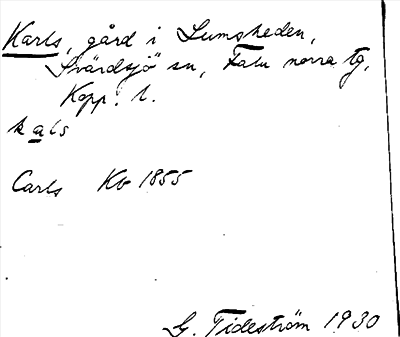 Karls, gård i Lumsheden,
Svärdsjö sn, Falu norra tg,
Kopp. l.
kals
Carls Kb 1855
G. Tideström 1930